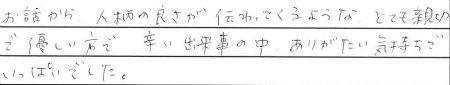 お話から、人柄の良さが伝わってくるような、とても親切
で優しい方で 辛い出来事の中、ありがたい気持ちで
いっぱいでした。